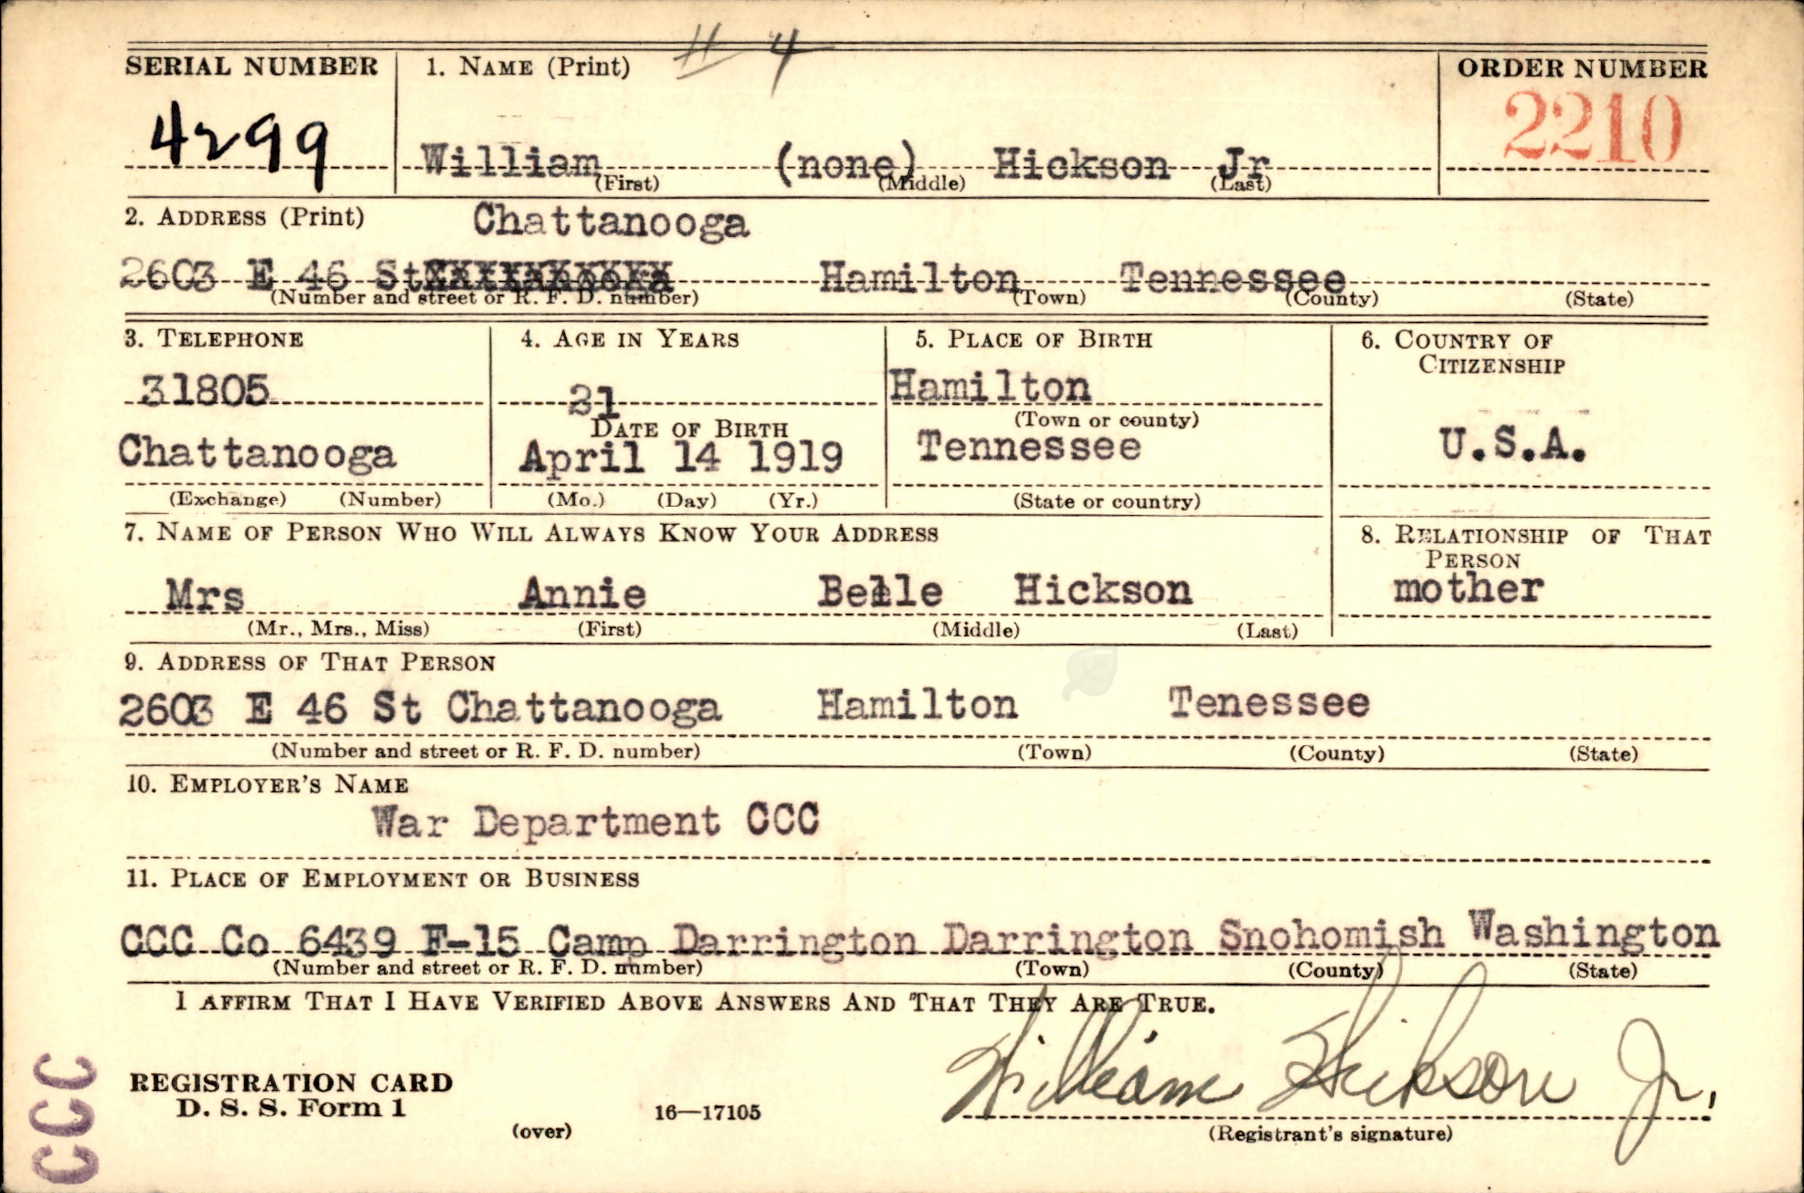 # 4
SERIAL NUMBER 1. NAME (Print) ORDER NUMBER
4299 William (none) Hickson Jr 2210
(First) (Middle) (Last)
2. ADDRESS (Print) Chattanooga
2603 E 46 St Hamilton Tennessee
(Number and street or R. F. D. number) (Town) (County) (State)
3. TELEPHONE 4. AGE IN YEARS 5. PLACE OF BIRTH 6. COUNTRY OF
CITIZENSHIP
31805 21 Hamilton
(Town or county)
DATE OF BIRTH
Chattanooga April 14 1919 Tennessee U.S.A.
(Exchange) (Number) (Mo.) (Day) (Yr.) (State or country)
7. NAME OF PERSON WHO WILL ALWAYS KNOW YOUR ADDRESS 8. RELATIONSHIP OF THAT
PERSON
Mrs Annie Belle Hickson mother
(Mr., Mrs., Miss) (First) (Middle) (Last)
9. ADDRESS OF THAT PERSON
2603 E 46 St Chattanooga Hamilton Tenessee
(Number and street or R. F. D. number) (Town) (County) (State)
10. EMPLOYER'S NAME
War Department CCC
11. PLACE OF EMPLOYMENT OR BUSINESS
CCC Co 6439 F-15 Camp Darrington Darrington Snohomish Washington
(Number and street or R. F. D. number) (Town) (County) (State)
I AFFIRM THAT I HAVE VERIFIED ABOVE ANSWERS AND THAT THEY ARE TRUE.
William Hickson Jr.
REGISTRATION CARD
D. S. S. Form 1 16—17105
(over) (Registrant's signature)
CCC